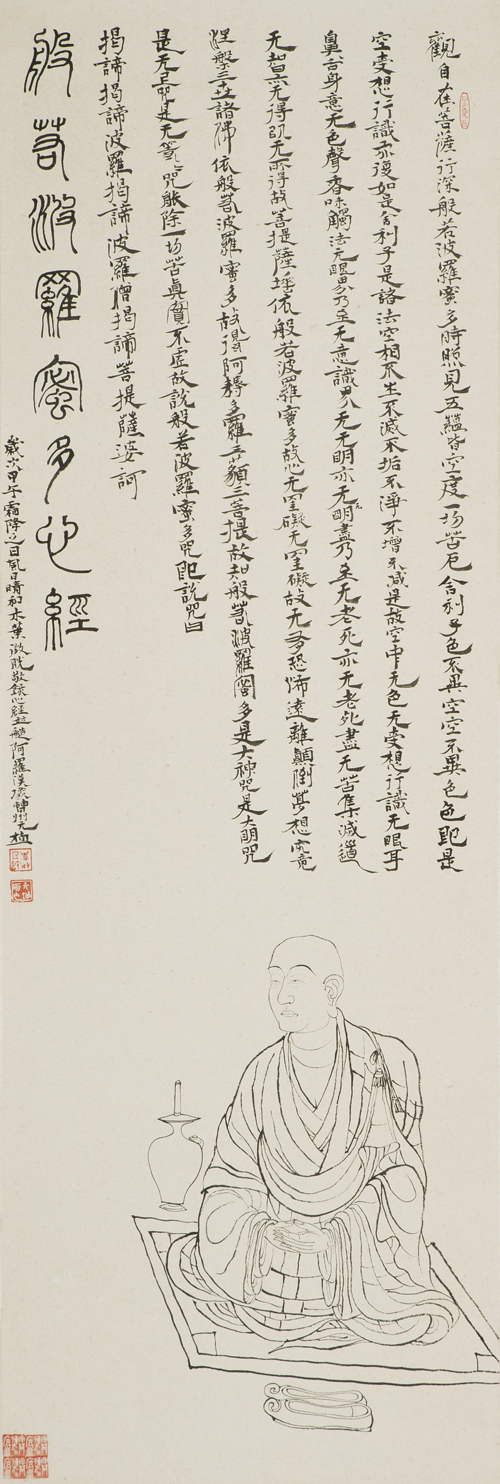 觀自在菩薩行深般若波羅蜜多時照見五蘊皆空度一切苦厄舍利子色不異空空不異色色即是
空受想行識亦復如是舍利子是諸法空相不生不滅不垢不淨不增不減是故空中无色无受想行識无眼耳
鼻舌身意无色聲香味觸法无眼界乃至无意識界无无明亦无无明盡乃至无老死亦无老死盡无苦集滅道
无智亦无得以无所得故菩提薩埵依般若波羅蜜多故心无罣礙无罣礙故无有恐怖遠離顛倒夢想究竟
涅槃三世諸佛依般若波羅蜜多故得阿耨多羅三藐三菩提故知般若波羅蜜多是大神咒是大明咒
是无上咒是无等等咒能除一切苦真實不虛故說般若波羅蜜多咒即說咒曰
揭諦揭諦波羅揭諦波羅僧揭諦菩提薩婆訶
般若波羅蜜多心經
歲次甲午霜降之日氣日晴和木葉微脫敬錄心經並造阿羅漢像